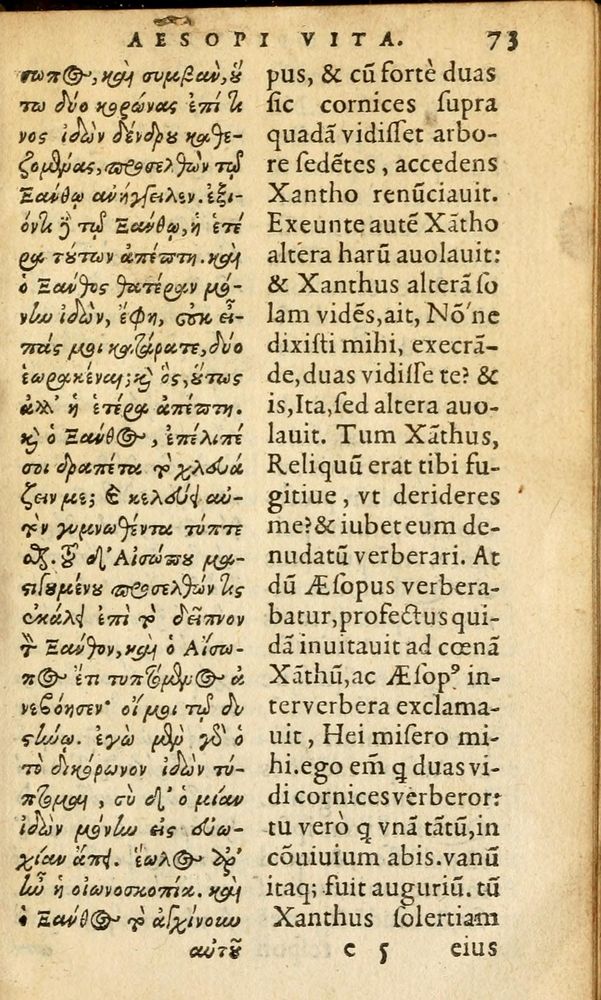 AESOPI VITA. 73
σωπος, καὶ συμβὰν, οὕ
τω δύο κορώνας ἐπί τι
νος ἰδὼν δένδρου καθε-
ζομένας, προσελθὼν τῷ
Ξάνθῳ ἀνήγγειλεν. ἐξι-
όντι δὲ τῷ Ξάνθῳ, ἡ ἑτέ
ρα τούτων ἀπέπτη. καὶ
ὁ Ξάνθος θατέραν μό-
νην ἰδὼν, ἔφη, οὐκ εἶ-
πάς μοι κατάρατε, δύο
ἑωρακέναι; καὶ ὃς, οὕτως
ἀλλ' ἡ ἑτέρα ἀπέπτη.
καὶ ὁ Ξάνθος, ἐπέλιπέ
σοι δραπέτα τὸ χλευά
ζειν με; καὶ κελεύει αὐ-
τὸν γυμνωθέντα τύπτε
σθαι. τοῦ δ' Αἰσώπου μα-
στιζομένου προσελθών τις
ἐκάλει ἐπὶ τὸ δεῖπνον
τὸν Ξάνθον, καὶ ὁ Αἴσω-
πος ἔτι τυπτόμενος ἀ
νεβόησεν· οἴμοι τῷ δυ
στήνῳ. ἐγὼ μὲν γὰρ ὁ
τὸ δικόρωνον ἰδὼν τύ-
πτομαι, σὺ δ' ὁ μίαν
ἰδὼν μόνην εἰς εὐω-
χίαν ἄπει. ἕωλος ἄρ'
ἦν ἡ οἰωνοσκοπία. καὶ
ὁ Ξάνθος τὸ ἀγχίνουν
αὐτοῦ
pus, & cũ fortè duas
sic cornices supra
quadã vidisset arbo-
re sedẽtes, accedens
Xantho renũciauit.
Exeunte autẽ Xãtho
altera harũ auolauit:
& Xanthus alterã so
lam vidẽs, ait, Nõ'ne
dixisti mihi, execrã-
de, duas vidisse te? &
is, Ita, sed altera auo-
lauit. Tum Xãthus,
Reliquũ erat tibi fu-
gitiue, vt derideres
me? & iubet eum de-
nudatũ verberari. At
dũ Æsopus verbera-
batur, profectus qui-
dã inuitauit ad cœnã
Xãthũ, ac Æsopꝰ in-
terverbera exclama-
uit, Hei misero mi-
hi. ego em̃ q duas vi-
di cornices verberor:
tu verò q vnã tãtũ, in
cõuiuium abis. vanũ
itaq; fuit auguriũ. tũ
Xanthus solertiam
c 5 eius